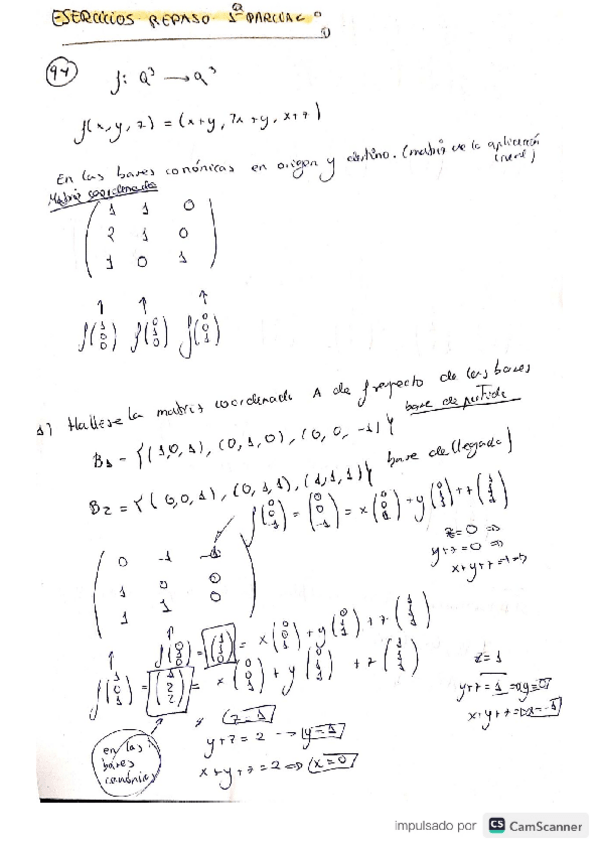 EJERCICIOS REPASO 1º PARCIAL
94
f: Q³ → Q³
f(x, y, z) = (x+y, 2x+y, x+z)
En las bases canónicas en origen y destino. (matriz de la aplicación lineal)
Matriz coordenada
1 1 0
2 1 0
1 0 1
↑ ↑ ↑
f(1 0 0) f(0 1 0) f(0 0 1)
1) Hallese la matriz coordenada A de f respecto de las bases
B1 = {(1,0,1), (0,1,0), (0,0,-1)} base de partida
B2 = {(0,0,1), (0,1,1), (1,1,1)} base de llegada
f(0 0 -1) = (0 0 -1) = x(0 0 1) + y(0 1 1) + z(1 1 1)
z=0 ⇒
y+z=0 ⇒
x+y+z=-1 ⇒
0 -1 -1
1 0 0
1 1 0
f(0 1 0) = (1 1 0) = x(0 0 1) + y(0 1 1) + z(1 1 1)
z=1
y+z=1 ⇒ y=0
x+y+z=0 ⇒ x=-1
f(1 0 1) = (1 2 2) = x(0 0 1) + y(0 1 1) + z(1 1 1)
z=1
y+z=2 → y=1
x+y+z=2 ⇒ x=0
en las bases canónicas
impulsado por CS CamScanner